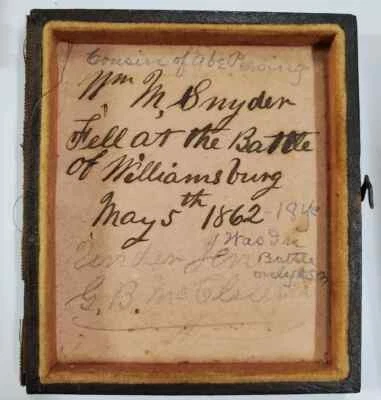 Cousin of Abe
Wm M. Snyder
Fell at the Battle
of Williamsburg
May 5th 1862
Was In
Under Gen
Battle
G. B. McClellan